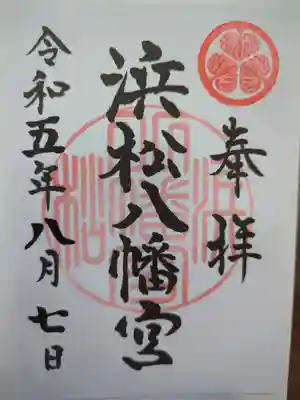 奉拝
浜松八幡宮
令和五年八月七日